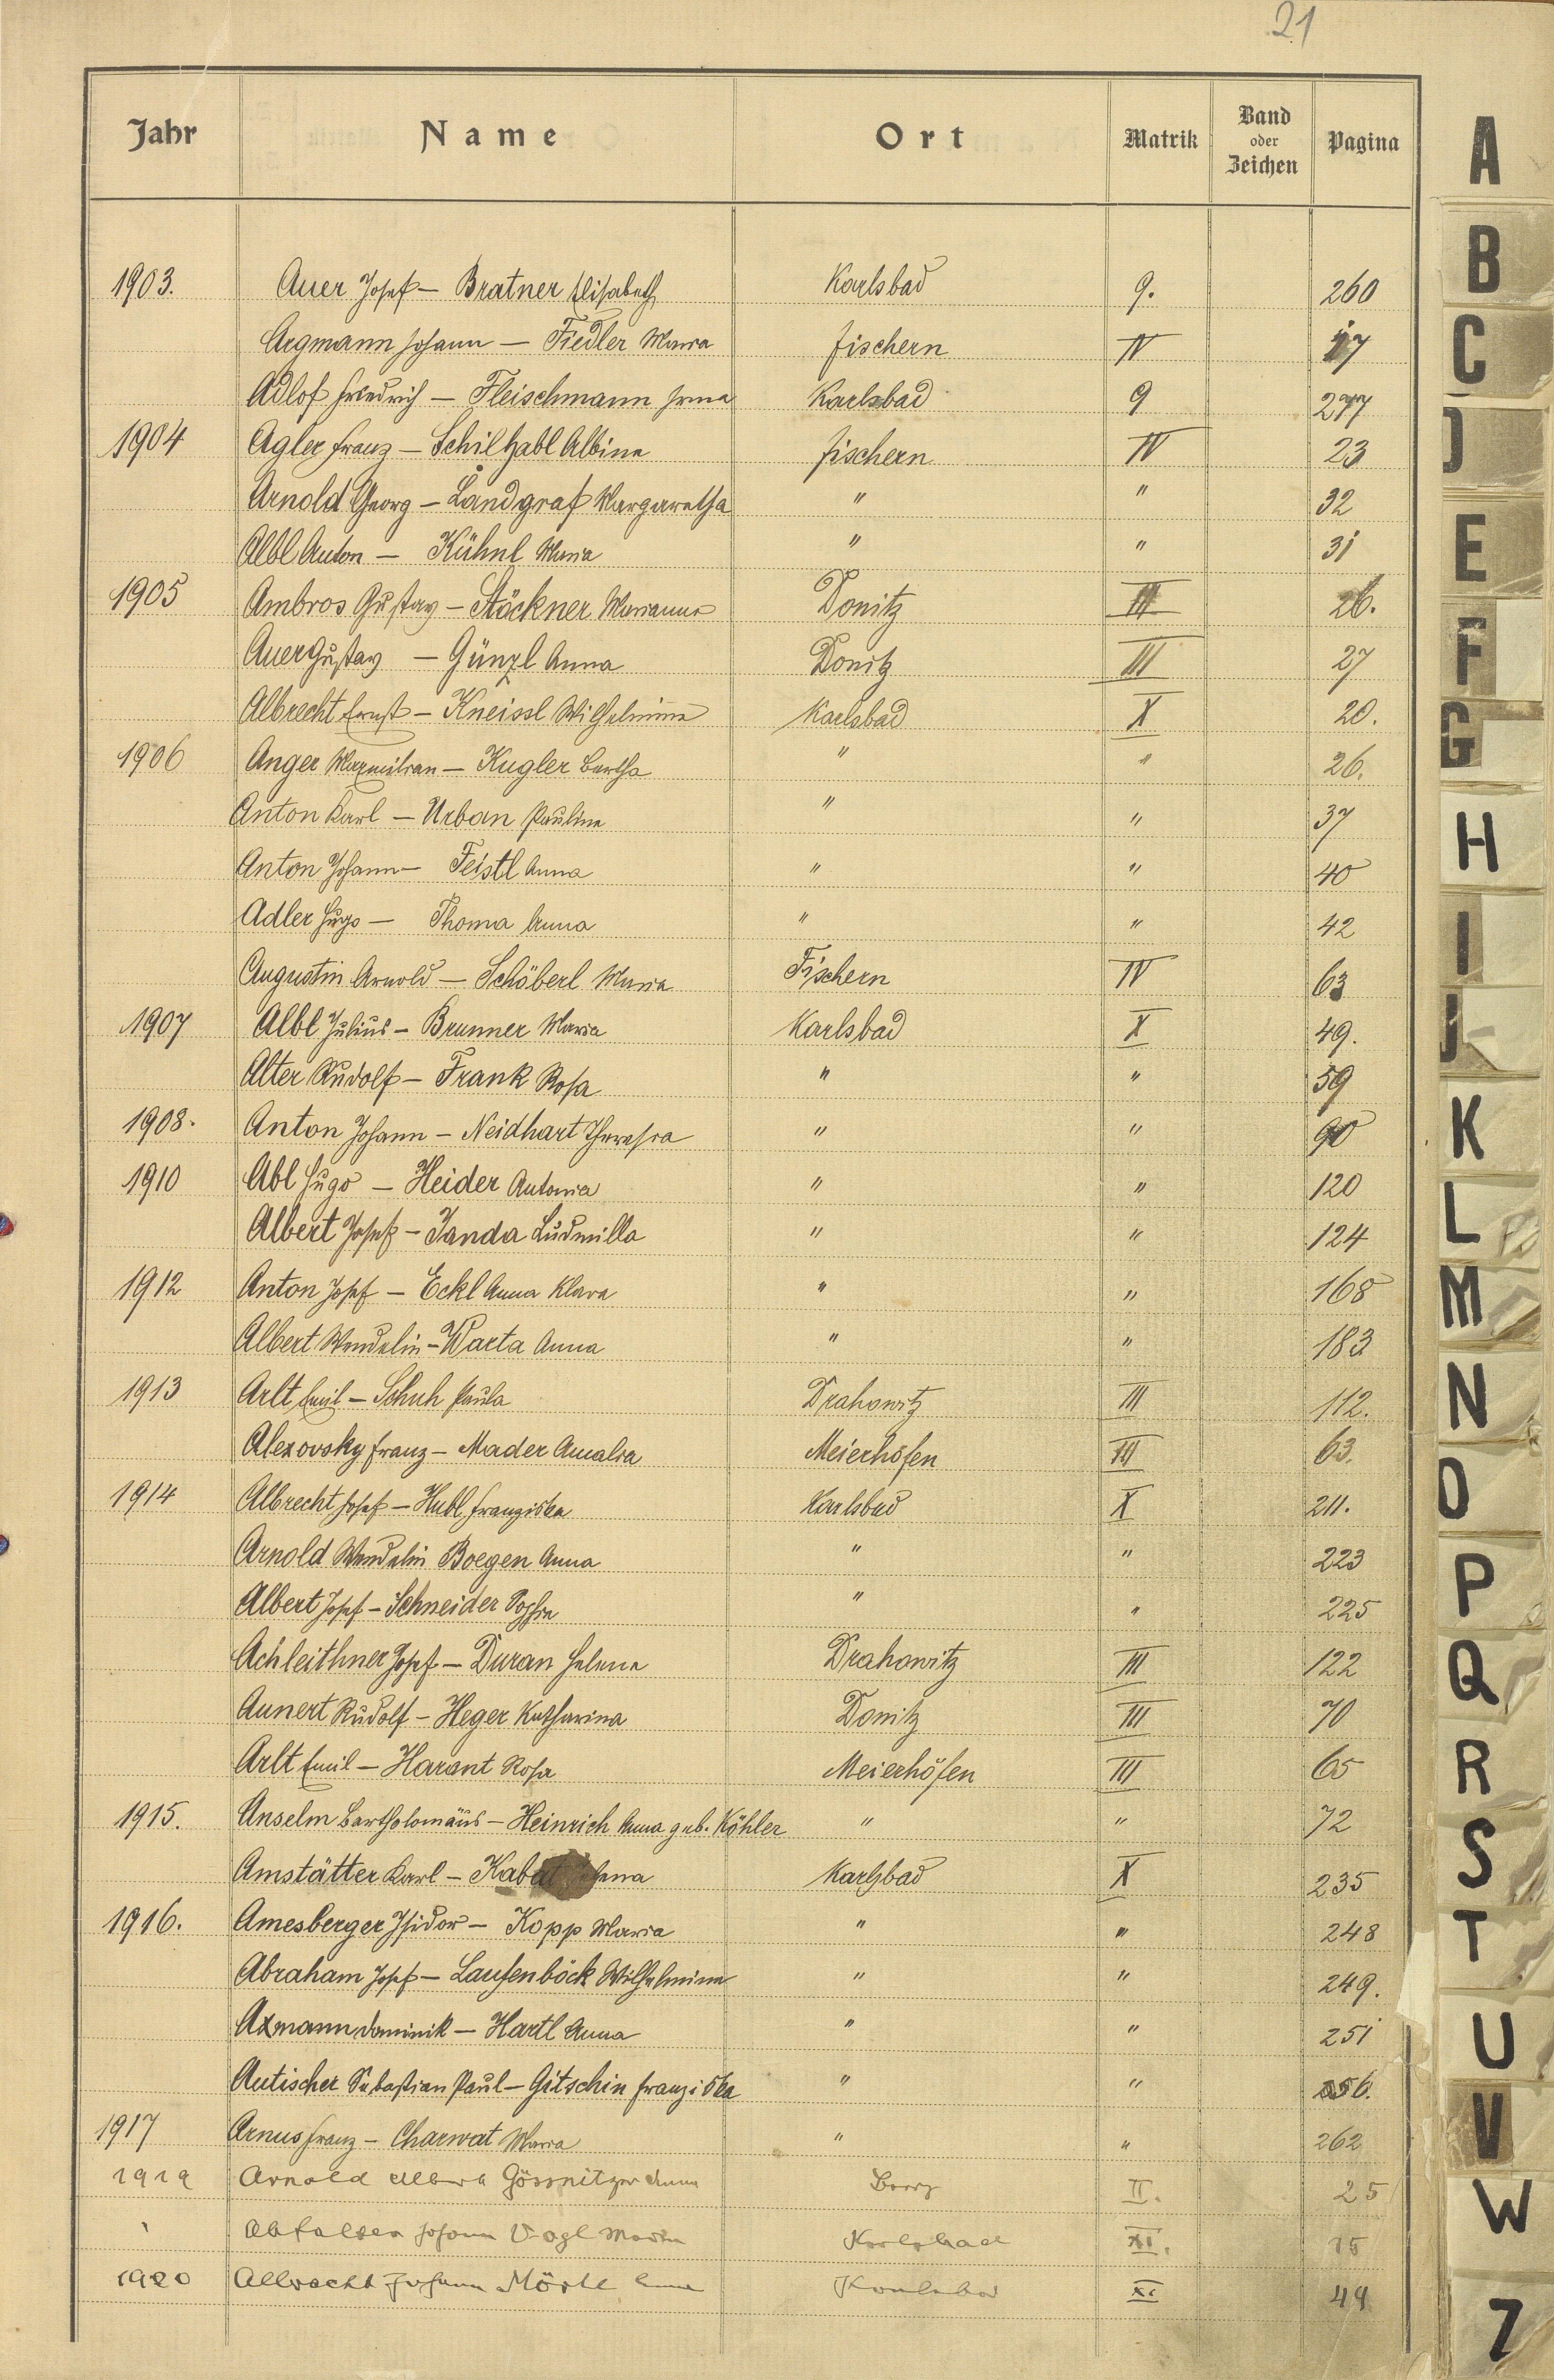 21
Jahr Name Ort Matrik Band oder Zeichen Pagina
1903. Auer Josef – Bratner Elisabeth Karlsbad 9. 260
Argmann Johann – Fiedler Maria Fischern IV 17
Adlof Friedrich – Fleischmann Irma Karlsbad 9 277
1904 Agler Franz – Schilhabl Albine Fischern IV 23
Arnold Georg – Landgraf Margaretha " " 32
Albl Anton – Kühnl Maria " " 31
1905 Ambros Gustav – Stöckner Marianne Donitz III 26.
Auer Gustav – Günzl Anna Donitz III 27
Albrecht Ernst – Kneissl Wilhelmine Karlsbad X 20.
1906 Anger Maxmilian – Kugler Bertha " " 26.
Anton Karl – Urban Pauline " " 37
Anton Johann – Feistl Anna " " 40
Adler Hugo – Thoma Anna " " 42
Augustin Arnold – Schöberl Maria Fischern IV 63
1907 Albl Julius – Brunner Maria Karlsbad X 49.
Alter Rudolf – Frank Rosa " " 59
1908. Anton Johann – Neidhart Theresia " " 90
1910 Abl Hugo – Heider Antonia " " 120
Albert Josef – Janda Ludmilla " " 124
1912 Anton Josef – Eckl Anna Klara " " 168
Albert Wendelin – Warta Anna " " 183
1913 Arlt Emil – Schuh Paula Drahowitz III 112.
Alexovsky Franz – Mader Amalia Meierhöfen III 63.
1914 Albrecht Josef – Hubl Franziska Karlsbad X 211.
Arnold Wendelin Boegen Anna " " 223
Albert Josef – Schneider Sophie " " 225
Achleithner Josef – Duran Helene Drahowitz III 122
Aunert Rudolf – Heger Katharina Donitz III 70
Arlt Emil – Harant Rosa Meierhöfen III 65
1915. Anselm Bartholomäus – Heinrich Anna geb. Köhler " " 72
Amstätter Karl – Kabat Karlsbad X 235
1916. Amesberger Isidor – Kopp Maria " " 248
Abraham Josef – Laufenböck Wilhelmine " " 249.
Axmann Dominik – Hartl Anna " " 251
Autischer Sebastian Paul – Gitschin Franziska " " 256.
1917 Arnus Franz – Charwat Maria " " 262
1919 Arnold Gössnitzer Anna II. 25
Johann Vogl Karlsbad XI. 15
1920 Albrecht Johann Karlsbad XI 44
A
B
C
D
E
F
G
H
I
J
K
L
M
N
O
P
Q
R
S
T
U
V
W
Z